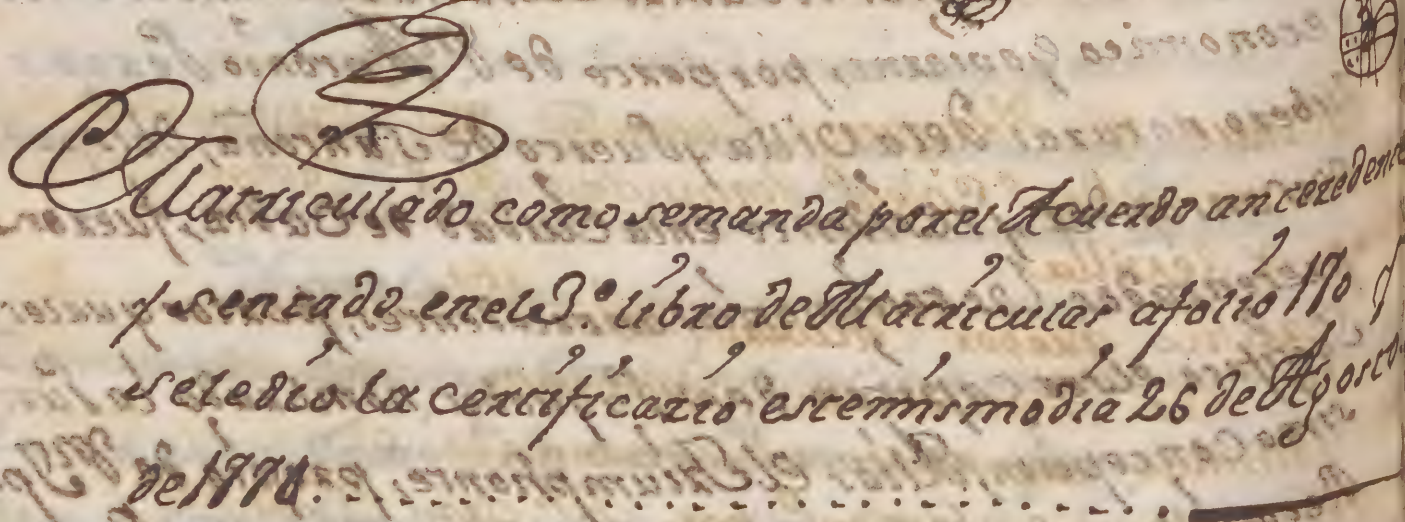 Matriculado como semanda por el Acuerdo antecedente
y sentado en el 3.º libro de Matriculas a folio 170 y
sele dio la certificazio este mismo dia 26 de Agosto
de 1774.